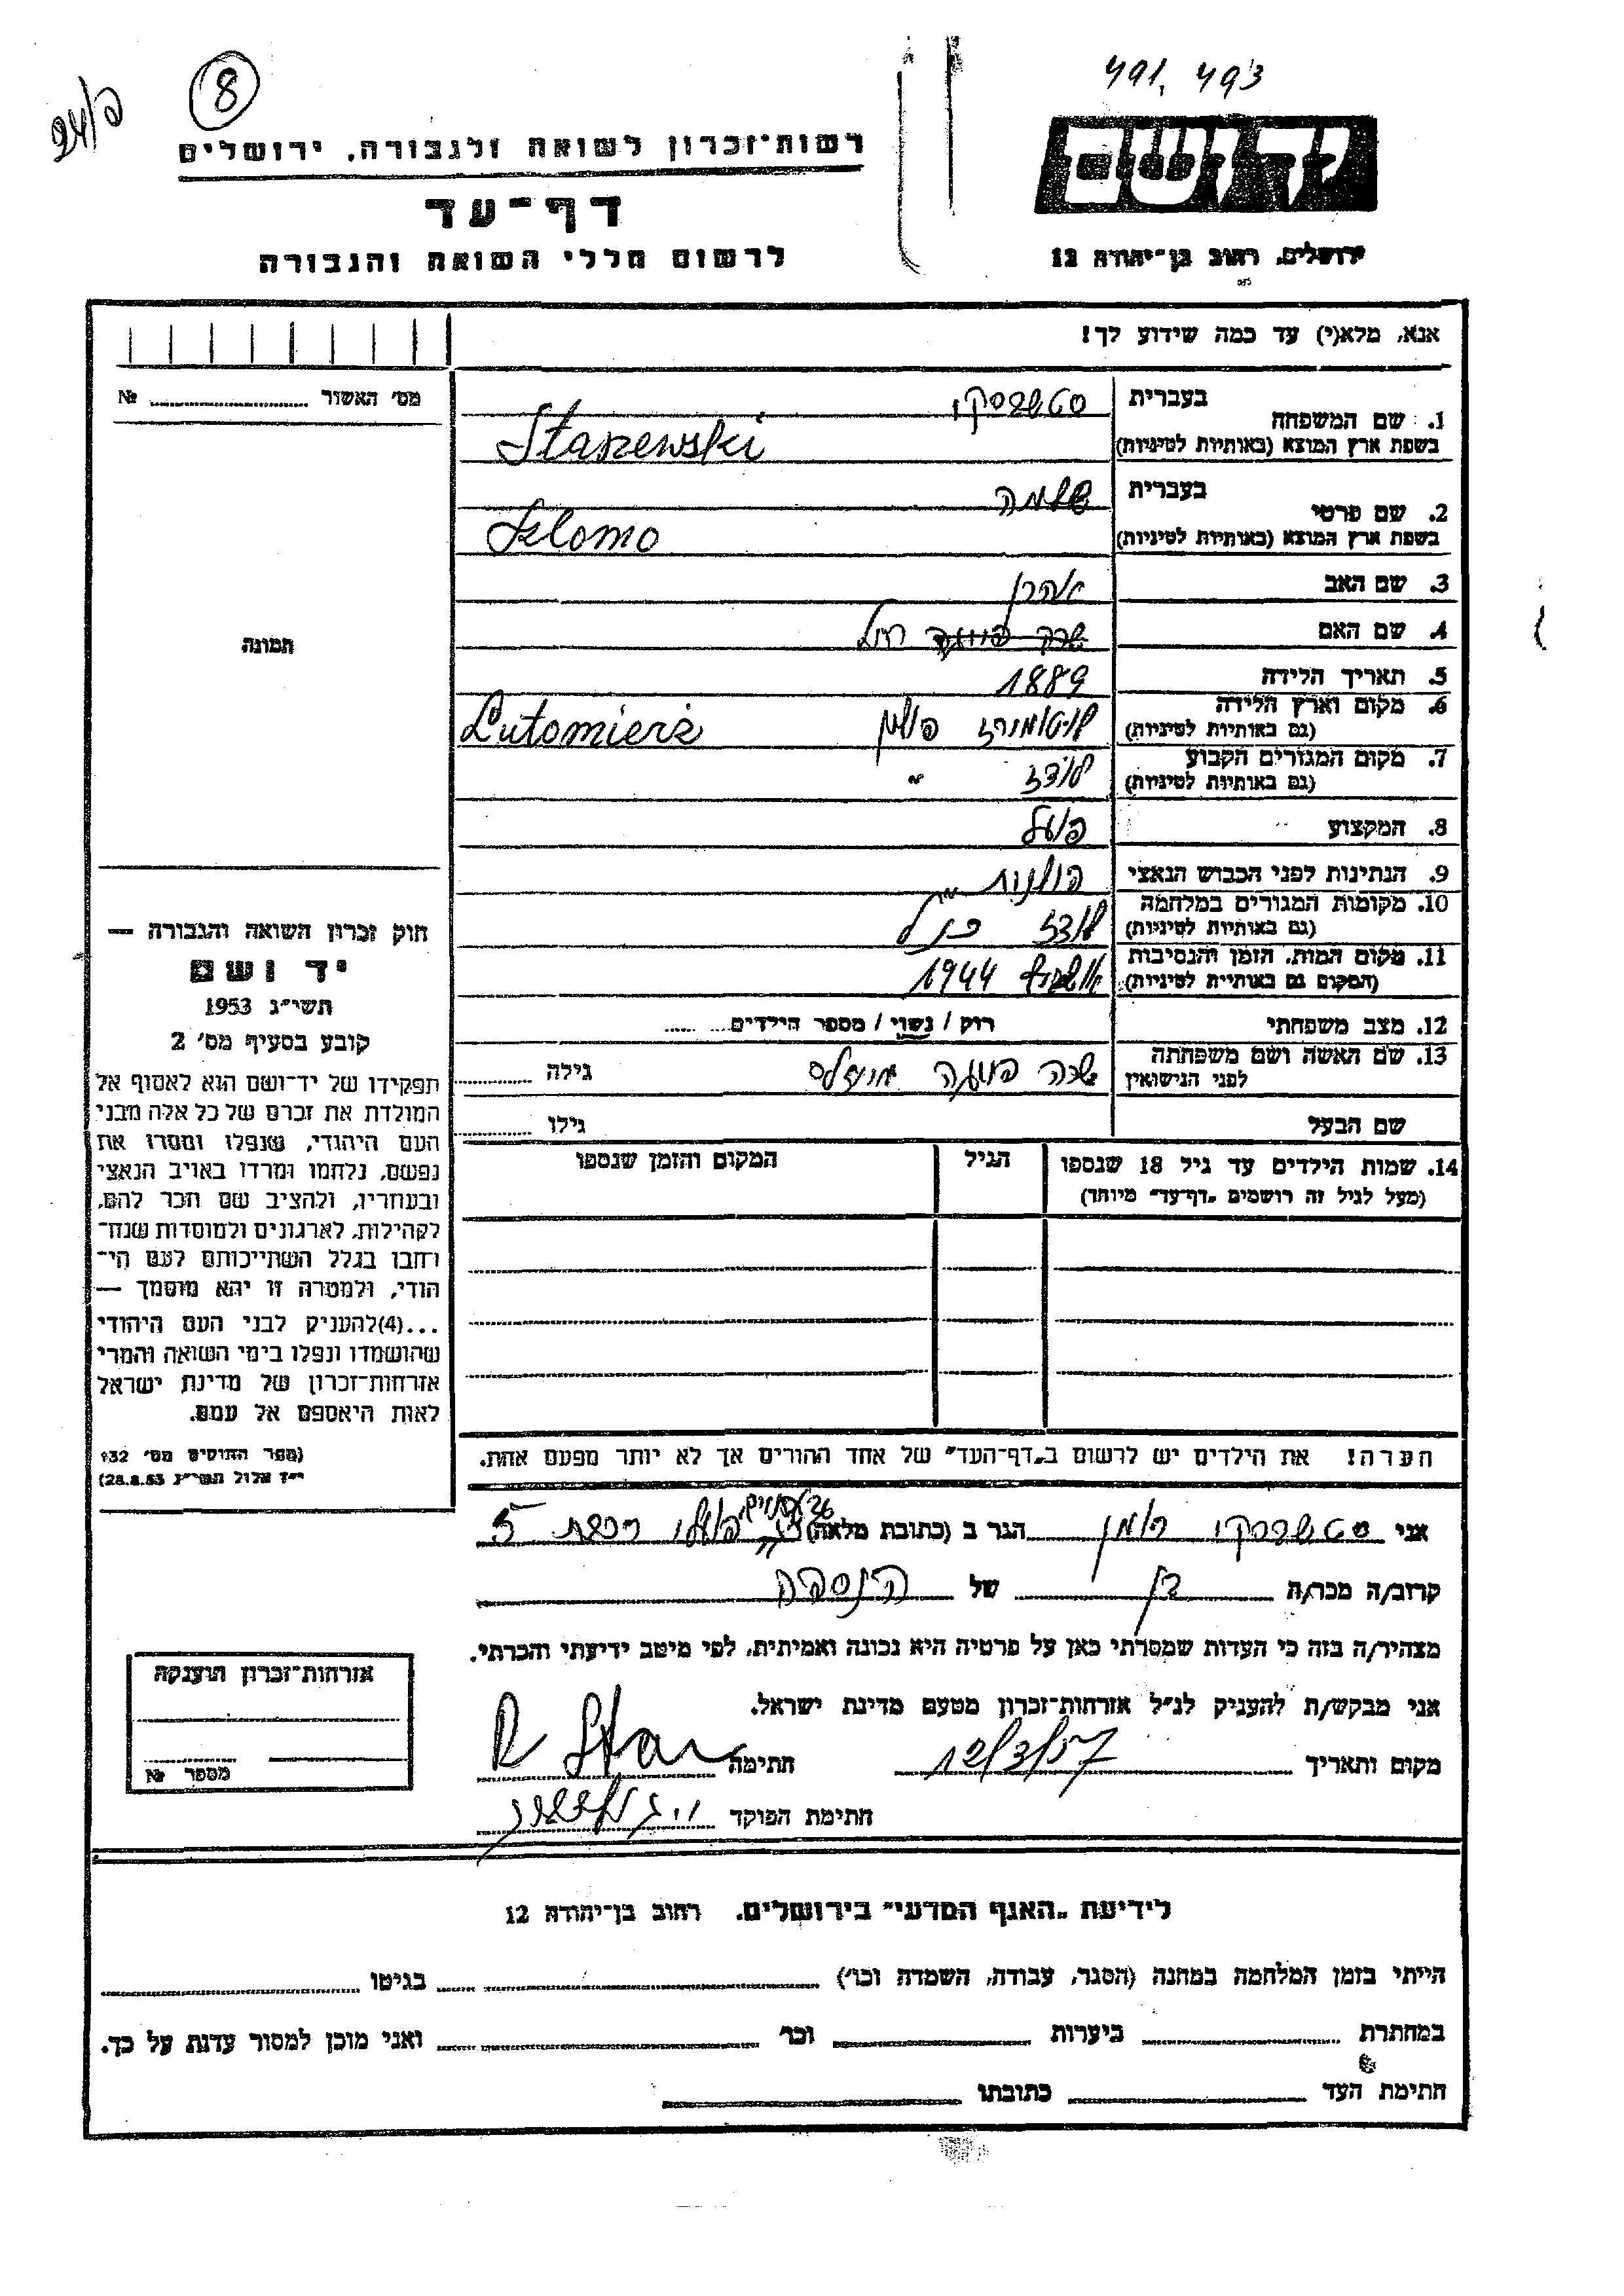 491, 493
8
24/2
יד ושם
רשות־זכרון לשואה ולגבורה, ירושלים
דף־עד
לרשום חללי השואה והגבורה
ירושלים, רחוב בן־יהודה 12
אנא, מלא(י) עד כמה שידוע לך!
מס׳ האשור № 
בעברית
סטשבסקי
1. שם המשפחה
בשפת ארץ המוצא (באותיות לטיניות)
Staszewski
בעברית
שלמה
2. שם פרטי
בשפת ארץ המוצא (באותיות לטיניות)
Szlomo
3. שם האב
אהרן
4. שם האם
תמונה
5. תאריך הלידה 1889
6. מקום וארץ הלידה
(גם באותיות לטיניות)
פולין Lutomierz
7. מקום המגורים הקבוע
(גם באותיות לטיניות)
לודז "
8. המקצוע פועל
9. הנתינות לפני הכבוש הנאצי
פולנית
10. מקומות המגורים במלחמה
(גם באותיות לטיניות)
לודז
11. מקום המות, הזמן והנסיבות
(המקום גם באותיות לטיניות)
אושביץ 1944
12. מצב משפחתי רוק / נשוי / מספר הילדים
13. שם האשה ושם משפחתה
לפני הנישואין
שרה גילה
שם הבעל גילו
14. שמות הילדים עד גיל 18 שנספו
(מעל לגיל זה רושמים „דף־עד״ מיוחד)
הגיל
המקום והזמן שנספו
הערה! את הילדים יש לרשום ב„דף־העד״ של אחד ההורים אך לא יותר מפעם אחת.
חוק זכרון השואה והגבורה —
יד ושם
תשי״ג 1953
קובע בסעיף מס׳ 2
תפקידו של יד־ושם הוא לאסוף אל
המולדת את זכרם של כל אלה מבני
העם היהודי, שנפלו ומסרו את
נפשם, נלחמו ומרדו באויב הנאצי
ובעוזריו, ולהציב שם וזכר להם,
לקהילות, לארגונים ולמוסדות שנח־
רחבו בגלל השתייכותם לעם הי־
הודי, ולמטרה זו יהא מוסמך —
...(4)להעניק לבני העם היהודי
שהושמדו ונפלו בימי השואה והמרי
אזרחות־זכרון של מדינת ישראל
לאות היאספם אל עמם.
(ספר החוקים מס׳ 132
י״ז אלול תשי״ג 28.8.53)
אני סטשבסקי רומן הגר ב (כתובת מלאה) 5
קרוב/ה מכר/ה בן של הנספה
מצהיר/ה בזה כי העדות שמסרתי כאן על פרטיה היא נכונה ואמיתית, לפי מיטב ידיעתי והכרתי.
אני מבקש/ת להעניק לנ״ל אזרחות־זכרון מטעם מדינת ישראל.
מקום ותאריך 12/3/57 חתימה
חתימת הפוקד
אזרחות־זכרון הוענקה
מספר №
לידיעת „האגף המדעי״ בירושלים, רחוב בן־יהודה 12
הייתי בזמן המלחמה במחנה (הסגר, עבודה, השמדה וכו׳) בגיטו
במחתרת ביערות וכו׳ ואני מוכן למסור עדות על כך.
חתימת העד כתובתו